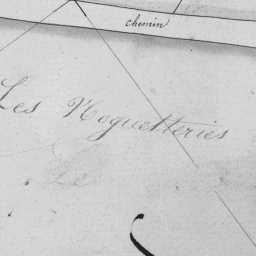 chemin
Les Noguetteries